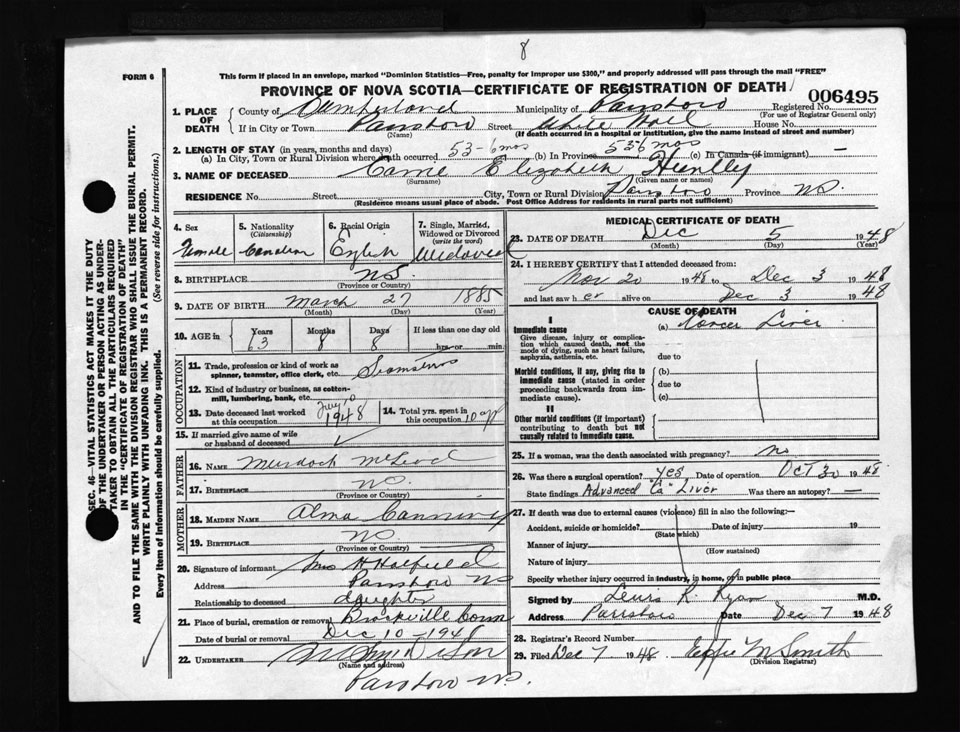 8
FORM 6
This form if placed in an envelope, marked "Dominion Statistics—Free, penalty for improper use $300," and properly addressed will pass through the mail "FREE"
PROVINCE OF NOVA SCOTIA—CERTIFICATE OF REGISTRATION OF DEATH
006495
SEC. 46—VITAL STATISTICS ACT MAKES IT THE DUTY
OF THE UNDERTAKER OR PERSON ACTING AS UNDER-
TAKER TO OBTAIN ALL THE PARTICULARS REQUIRED
IN THE "CERTIFICATE OF REGISTRATION OF DEATH"
AND TO FILE THE SAME WITH THE DIVISION REGISTRAR WHO SHALL ISSUE THE BURIAL PERMIT.
WRITE PLAINLY WITH UNFADING INK. THIS IS A PERMANENT RECORD.
Every item of Information should be carefully supplied. (See reverse side for instructions.)
1. PLACE OF DEATH
County of Cumberland Municipality of Parrsboro Registered No.
(For use of Registrar General only)
If in City or Town Parrsboro Street White Hall House No.
(Name) (If death occurred in a hospital or institution, give the name instead of street and number)
2. LENGTH OF STAY (in years, months and days)
(a) In City, Town or Rural Division where death occurred 53-6 mos (b) In Province 53 6 mos (c) In Canada (if immigrant) —
3. NAME OF DECEASED Carrie Elizabeth Huntley
(Surname) (Given name or names)
RESIDENCE No. Street City, Town or Rural Division Parrsboro Province N.S.
(Residence means usual place of abode. Post Office Address for residents in rural parts not sufficient)
4. Sex Female
5. Nationality (Citizenship) Canadian
6. Racial Origin English
7. Single, Married, Widowed or Divorced (write the word) Widowed
8. BIRTHPLACE N.S.
(Province or Country)
9. DATE OF BIRTH March 27 1885
(Month) (Day) (Year)
10. AGE in Years 63 Months 8 Days 8 If less than one day old hrs. or min.
OCCUPATION
11. Trade, profession or kind of work as spinner, teamster, office clerk, etc. Seamstress
12. Kind of industry or business, as cotton-mill, lumbering, bank, etc.
13. Date deceased last worked at this occupation 1948
14. Total yrs. spent in this occupation 10
15. If married give name of wife or husband of deceased ✓
FATHER
16. NAME Murdock McLeod
17. BIRTHPLACE N.S.
(Province or Country)
MOTHER
18. MAIDEN NAME Alma Canning
19. BIRTHPLACE N.S.
(Province or Country)
20. Signature of informant Mrs H Hatfield
Address Parrsboro NS
Relationship to deceased daughter
21. Place of burial, cremation or removal Brockville Cem
Date of burial or removal Dec 10-1948
22. UNDERTAKER
(Name and address)
Parrsboro N.S.
MEDICAL CERTIFICATE OF DEATH
23. DATE OF DEATH Dec 5 1948
(Month) (Day) (Year)
24. I HEREBY CERTIFY that I attended deceased from:
Nov 20 1948 to Dec 3 1948
and last saw her alive on Dec 3 1948
CAUSE OF DEATH
I
Immediate cause (a) Cancer Liver
Give disease, injury or complication which caused death, not the mode of dying, such as heart failure, asphyxia, asthenia, etc.
due to
Morbid conditions, if any, giving rise to immediate cause (stated in order proceeding backwards from immediate cause).
(b)
due to
(c)
II
Other morbid conditions (if important) contributing to death but not causally related to immediate cause.
25. If a woman, was the death associated with pregnancy? no
26. Was there a surgical operation? Yes Date of operation Oct 30 1948
State findings Advanced "Ca" Liver Was there an autopsy? —
27. If death was due to external causes (violence) fill in also the following:—
Accident, suicide or homicide? Date of injury 19
(State which)
Manner of injury
(How sustained)
Nature of injury
Specify whether injury occurred in industry, in home, or in public place
Signed by R. Ryan M.D.
Address Parrsboro Date Dec 7 1948
28. Registrar's Record Number
29. Filed Dec 7 1948 Effie M Smith
(Division Registrar)